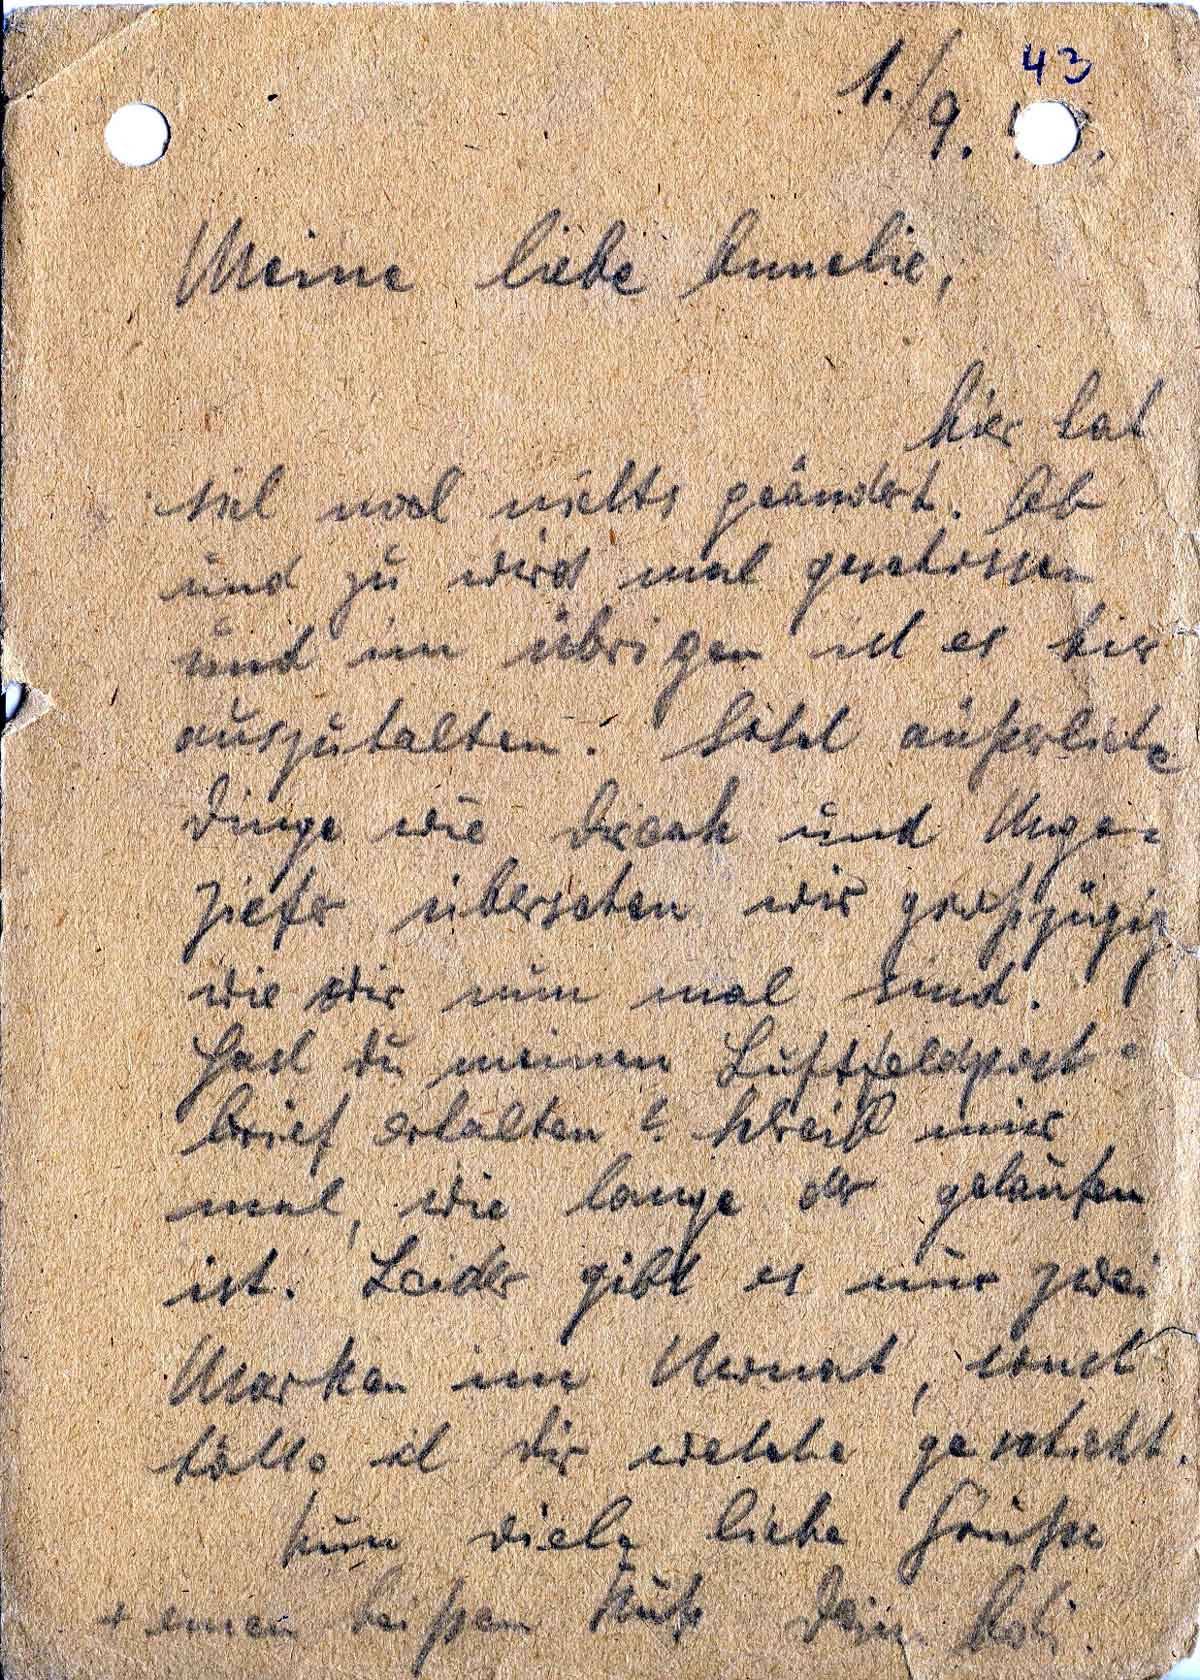 43
1./9.
Meine liebe Annelie,
hier hat
sich noch nichts geändert. Ab
und zu wird mal geschossen
und im übrigen ist es hier
auszuhalten. Solch äußerliche
Dinge wie Dreck und Unge=
ziefer übersehen wir großzügig
wie wir nun mal sind.
Hast du meinen Luftfeldpost-
brief erhalten? Schreib mir
mal, wie lange der gelaufen
ist. Leider gibt es nur zwei
Marken im Monat, sonst
hätte ich dir welche geschickt.
Nun viele liebe Grüße
+ einen heißen Kuß Dein